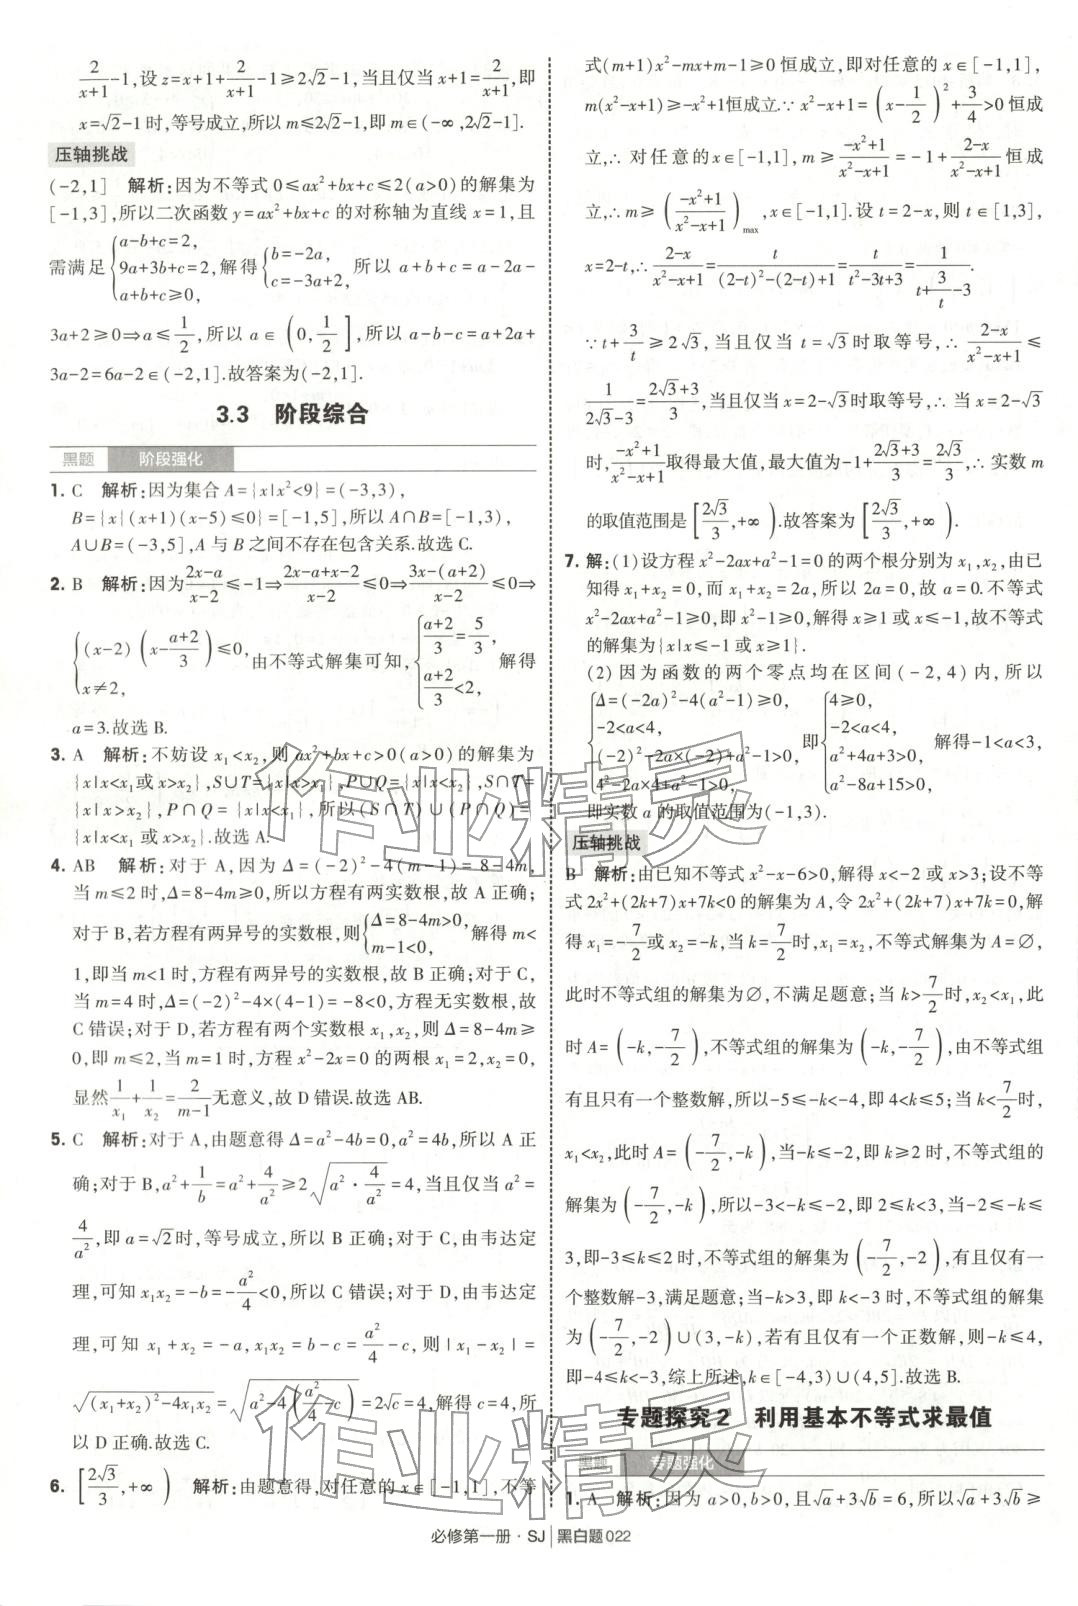 2/(x+1)-1,设 z=x+1+2/(x+1)-1≥2√2-1,当且仅当 x+1=2/(x+1),即
x=√2-1 时,等号成立,所以 m≤2√2-1,即 m∈(-∞,2√2-1].
压轴挑战
(-2,1] 解析:因为不等式 0≤ax²+bx+c≤2(a>0)的解集为
[-1,3],所以二次函数 y=ax²+bx+c 的对称轴为直线 x=1,且
需满足{a-b+c=2, 9a+3b+c=2, a+b+c≥0, 解得{b=-2a, c=-3a+2, 所以 a+b+c=a-2a-
3a+2≥0⇒a≤1/2,所以 a∈(0,1/2],所以 a-b-c=a+2a+
3a-2=6a-2∈(-2,1].故答案为(-2,1].
3.3 阶段综合
黑题 阶段强化
1. C 解析:因为集合 A={x|x²<9}=(-3,3),
B={x|(x+1)(x-5)≤0}=[-1,5],所以 A∩B=[-1,3),
A∪B=(-3,5],A 与 B 之间不存在包含关系.故选 C.
2. B 解析:因为(2x-a)/(x-2)≤-1⇒(2x-a+x-2)/(x-2)≤0⇒(3x-(a+2))/(x-2)≤0⇒
{(x-2)(x-(a+2)/3)≤0, x≠2, 由不等式解集可知,{(a+2)/3=5/3, (a+2)/3<2, 解得
a=3.故选 B.
3. A 解析:不妨设 x₁<x₂,则 ax²+bx+c>0(a>0)的解集为
{x|x<x₁或 x>x₂},S∪T={x|x>x₁},P∪Q={x|x<x₂},S∩T=
{x|x>x₂},P∩Q={x|x<x₁},所以(S∩T)∪(P∩Q)=
{x|x<x₁ 或 x>x₂}.故选 A.
4. AB 解析:对于 A,因为 Δ=(-2)²-4(m-1)=8-4m,
当 m≤2 时,Δ=8-4m≥0,所以方程有两实数根,故 A 正确;
对于 B,若方程有两异号的实数根,则{Δ=8-4m>0, m-1<0, 解得 m<
1,即当 m<1 时,方程有两异号的实数根,故 B 正确;对于 C,
当 m=4 时,Δ=(-2)²-4×(4-1)=-8<0,方程无实数根,故
C 错误;对于 D,若方程有两个实数根 x₁,x₂,则 Δ=8-4m≥
0,即 m≤2,当 m=1 时,方程 x²-2x=0 的两根 x₁=2,x₂=0,
显然1/x₁+1/x₂=2/(m-1)无意义,故 D 错误.故选 AB.
5. C 解析:对于 A,由题意得 Δ=a²-4b=0,a²=4b,所以 A 正
确;对于 B,a²+1/b=a²+4/a²≥2√(a²·4/a²)=4,当且仅当 a²=
4/a²,即 a=√2时,等号成立,所以 B 正确;对于 C,由韦达定
理,可知 x₁x₂=-b=-a²/4<0,所以 C 错误;对于 D,由韦达定
理,可知 x₁+x₂=-a,x₁x₂=b-c=a²/4-c,则|x₁-x₂|=
√((x₁+x₂)²-4x₁x₂)=√(a²-4(a²/4-c))=2√c=4,解得 c=4,所
以 D 正确.故选 C.
6. [2√3/3,+∞) 解析:由题意得,对任意的 x∈[-1,1],不等
式(m+1)x²-mx+m-1≥0 恒成立,即对任意的 x∈[-1,1],
m(x²-x+1)≥-x²+1恒成立.∵x²-x+1=(x-1/2)²+3/4>0 恒成
立,∴对任意的 x∈[-1,1],m≥(-x²+1)/(x²-x+1)=-1+(2-x)/(x²-x+1)恒成
立,∴m≥((-x²+1)/(x²-x+1))max,x∈[-1,1].设 t=2-x,则 t∈[1,3],
x=2-t,∴(2-x)/(x²-x+1)=t/((2-t)²-(2-t)+1)=t/(t²-3t+3)=1/(t+3/t-3).
∵t+3/t≥2√3,当且仅当 t=√3时取等号,∴(2-x)/(x²-x+1)≤
1/(2√3-3)=(2√3+3)/3,当且仅当 x=2-√3时取等号,∴当 x=2-√3
时,(-x²+1)/(x²-x+1)取得最大值,最大值为-1+(2√3+3)/3=2√3/3,∴实数 m
的取值范围是[2√3/3,+∞).故答案为[2√3/3,+∞).
7. 解:(1)设方程 x²-2ax+a²-1=0 的两个根分别为 x₁,x₂,由已
知得 x₁+x₂=0,而 x₁+x₂=2a,所以 2a=0,故 a=0.不等式
x²-2ax+a²-1≥0,即 x²-1≥0,解得 x≥1 或 x≤-1,故不等式
的解集为{x|x≤-1 或 x≥1}.
(2)因为函数的两个零点均在区间(-2,4)内,所以
{Δ=(-2a)²-4(a²-1)≥0, -2<a<4, (-2)²-2a×(-2)+a²-1>0, 4²-2a×4+a²-1>0, 即{4≥0, -2<a<4, a²+4a+3>0, a²-8a+15>0, 解得-1<a<3,
即实数 a 的取值范围为(-1,3).
压轴挑战
B 解析:由已知不等式 x²-x-6>0,解得 x<-2 或 x>3;设不等
式 2x²+(2k+7)x+7k<0 的解集为 A,令 2x²+(2k+7)x+7k=0,解
得 x₁=-7/2或 x₂=-k,当 k=7/2时,x₁=x₂,不等式解集为 A=∅,
此时不等式组的解集为∅,不满足题意;当 k>7/2时,x₂<x₁,此
时 A=(-k,-7/2),不等式组的解集为(-k,-7/2),由不等式组
有且只有一个整数解,所以-5≤-k<-4,即 4<k≤5;当 k<7/2时,
x₁<x₂,此时 A=(-7/2,-k),当-k≤-2,即 k≥2 时,不等式组的
解集为(-7/2,-k),所以-3<-k≤-2,即 2≤k<3,当-2≤-k≤
3,即-3≤k≤2 时,不等式组的解集为(-7/2,-2),有且仅有一
个整数解-3,满足题意;当-k>3,即 k<-3 时,不等式组的解集
为(-7/2,-2)∪(3,-k),若有且仅有一个正数解,则-k≤4,
即-4≤k<-3,综上所述,k∈[-4,3)∪(4,5].故选 B.
专题探究 2 利用基本不等式求最值
黑题 专题强化
1. A 解析:因为 a>0,b>0,且√a+3√b=6,所以√a+3√b≥
必修第一册·SJ 黑白题 022
作业精灵
作业精灵